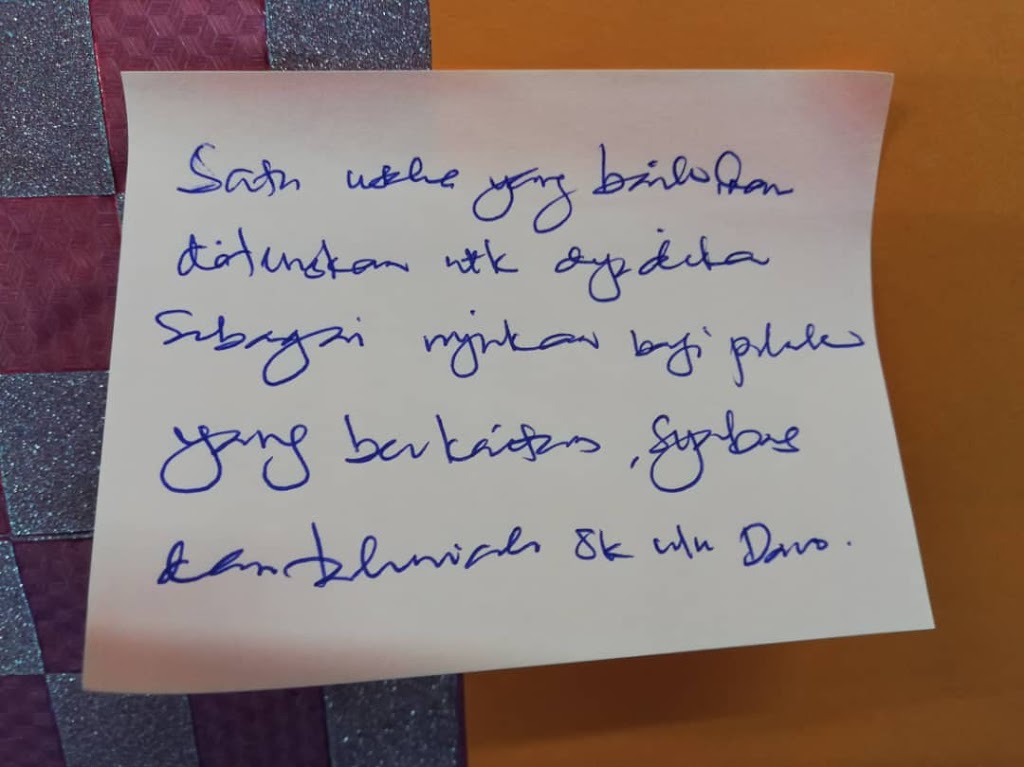 Satu usaha yang baik dan
diteruskan utk dijadikan
Sebagai rujukan bagi pihak
yang berkaitan, Syabas
dan tahniah SK Ulu